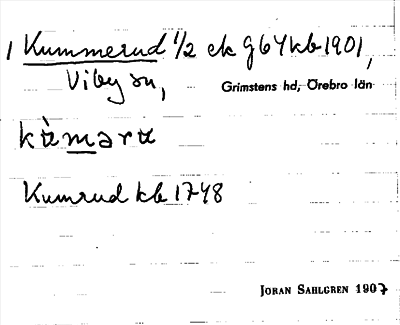 1 Kummerud 1/2 ek g 64 kb 1901,
Viby sn,
Grimstens hd, Örebro län
Kumrud kb 1748
JÖRAN SAHLGREN 1907